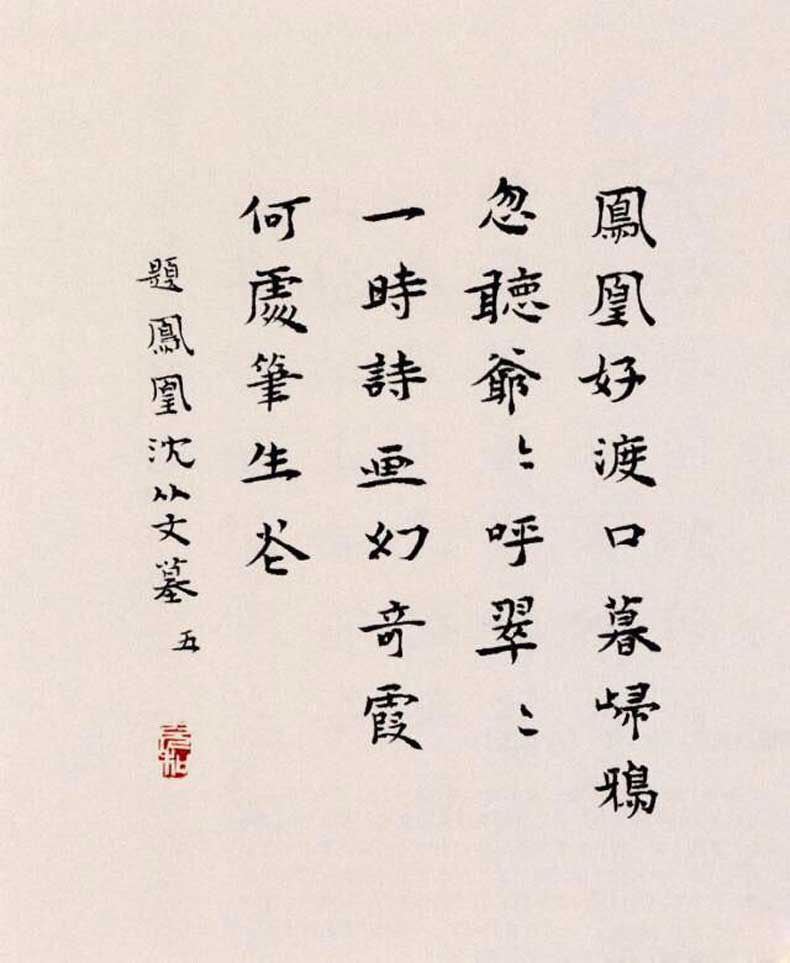 鳳凰好渡口暮歸鴉
忽聽爺〻呼翠〻
一時詩画幻奇霞
何處筆生花
題鳳凰沈从文墓 五
元和